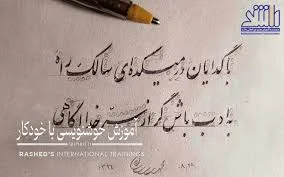 با گدایان در میکده ای سالک راه
با ادب باش گر از سر خدا آگاهی
آموزش خوشنویسی با خودکار
RASHED'S INTERNATIONAL TRAININGS